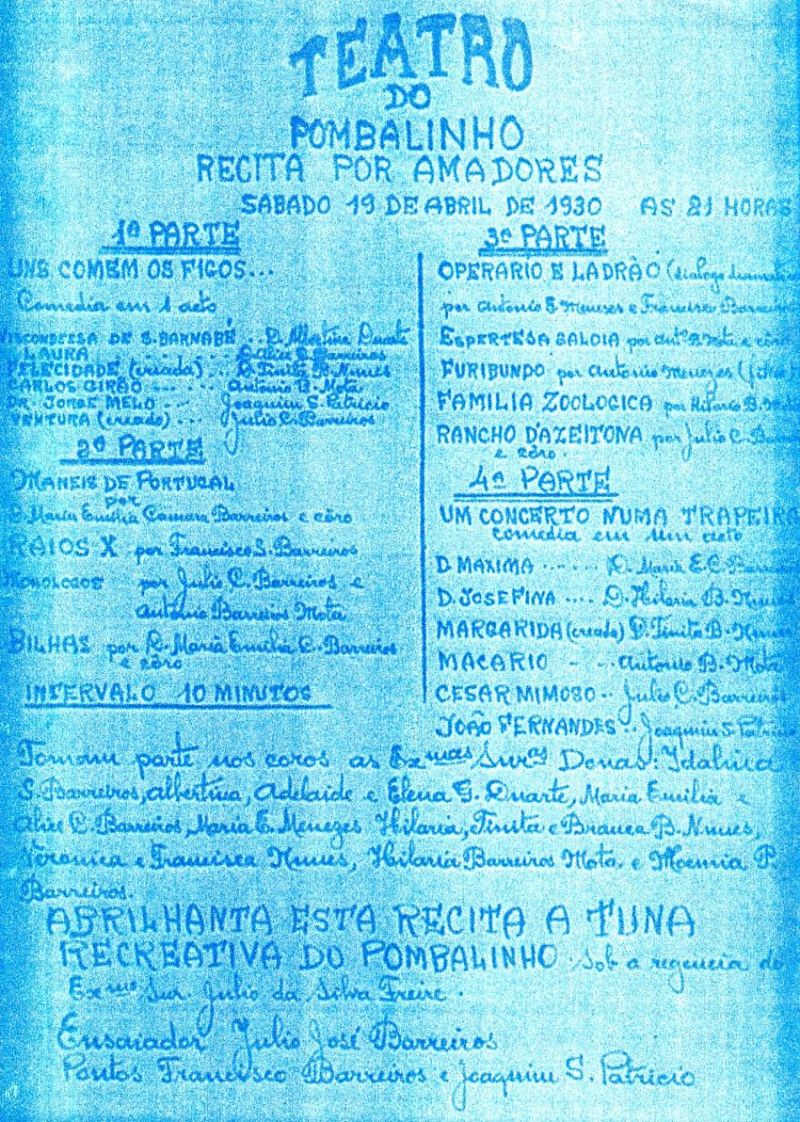 TEATRO
DO
POMBALINHO
RECITA POR AMADORES
SABADO 19 DE ABRIL DE 1930 AS 21 HORAS
1ª PARTE
UNS COMEM OS FIGOS...
Comedia em 1 acto
VISCONDESSA DE S. BARNABÉ .. D. Albertina Duarte
LAURA .. .. .. D. Alice C. Barreiros
FELECIDADE (creada) .. D. Tinita B. Nunes
CARLOS GIRÃO .. .. Antonio B. Mota
DR. JORGE MELO .. Joaquim S. Patricio
VENTURA (creado) .. Julio C. Barreiros
2ª PARTE
MANEIS DE PORTUGAL
por
D. Maria Emilia Camara Barreiros e côro
RAIOS X por Francisco S. Barreiros
MONOLOGOS por Julio C. Barreiros e
Antonio Barreiros Mota
BILHAS por D. Maria Emilia C. Barreiros
e côro
INTERVALO 10 MINUTOS
3ª PARTE
OPERARIO E LADRÃO (dialogo dramatico
por Antonio E. Meneses e Francisco Barreiros
ESPERTESA SALOIA por Antº B. Mota e côro
FURIBUNDO por Antonio Menezes
FAMILIA ZOOLOGICA por Hilario B. Mota
RANCHO D'AZEITONA por Julio C. Barreiros
e côro.
4ª PARTE
UM CONCERTO NUMA TRAPEIRA
comedia em um acto
D. MAXIMA ...... D. Maria E. C. Barreiros
D. JOSEFINA .... D. Hilaria B. Nunes
MARGARIDA (creada) D. Tinita B. Nunes
MACARIO - - Antonio B. Mota
CESAR MIMOSO .. Julio C. Barreiros
JOÃO FERNANDES .. Joaquim S. Patricio
Tomam parte nos coros as Exmas Snras Donas: Idalina
S. Barreiros, Albertina, Adelaide e Elena G. Duarte, Maria Emilia e
Alice C. Barreiros, Maria E. Menezes Hilaria, Tinita e Branca B. Nunes,
Veronica e Francisca Nunes, Hilaria Barreiros Mota e Moemia P.
Barreiros.
ABRILHANTA ESTA RECITA A TUNA
RECREATIVA DO POMBALINHO. Sob a regencia do
Exmo Snr. Julio da Silva Freire.
Ensaiador Julio José Barreiros
Pontos Francisco Barreiros e Joaquim S. Patricio